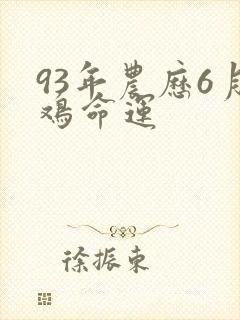 93年農歷6月
鸡命運
徐振東